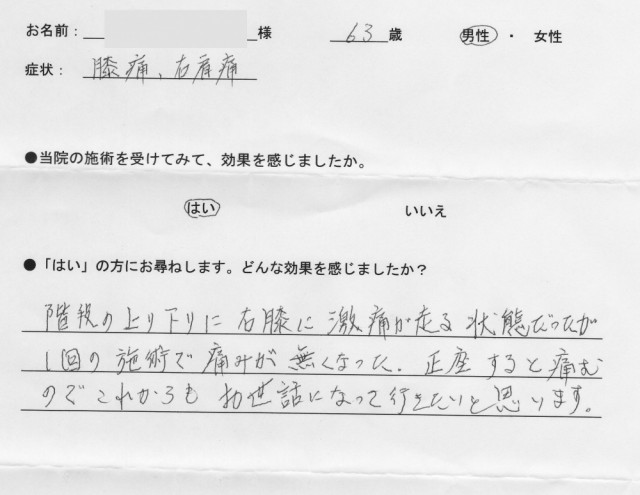 お名前： 様 63 歳 男性 ・ 女性
症状： 膝痛、右肩痛
●当院の施術を受けてみて、効果を感じましたか。
はい いいえ
●「はい」の方にお尋ねします。どんな効果を感じましたか？
階段の上り下りに右膝に激痛が走る状態だったが
1回の施術で痛みが無くなった。正座すると痛む
のでこれからもお世話になって行きたいと思います。